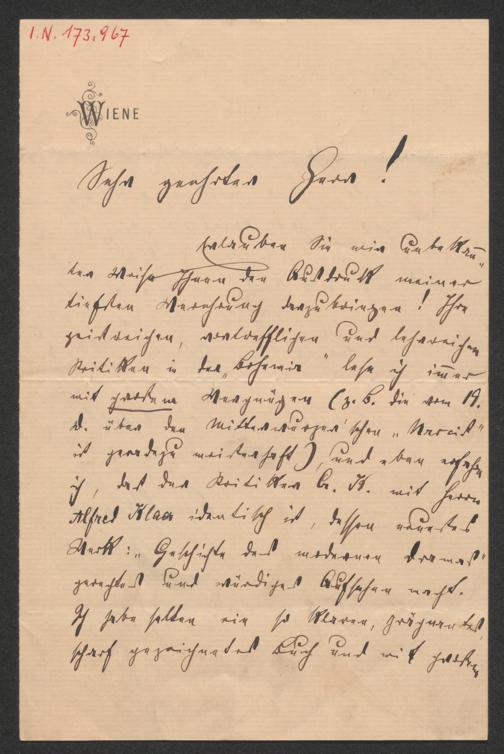 I.N. 173.967
WIENE
Sehr geehrter Herr!
Erlauben Sie mir unbekann-
ter Weise Ihnen den Ausdruck meiner
tiefsten Verehrung darzubringen! Ihre
geistreichen, vortrefflichen und lehrreichen
Kritiken in der „Bohemia" lese ich immer
mit großem Vergnügen (z. B. die vom 19.
d. über den Mitterwurzer'schen „Narciß"
ist geradezu meisterhaft), und eben erfahre
ich, daß der Kritiker Cr. K. mit Herrn
Alfred Klaar identisch ist, dessen neuestes
Werk: „Geschichte des modernen Dramas"
gerechtes und würdiges Aufsehen macht.
Ich habe selten ein so klares, prägnantes,
scharf gezeichnetes Buch und mit großem